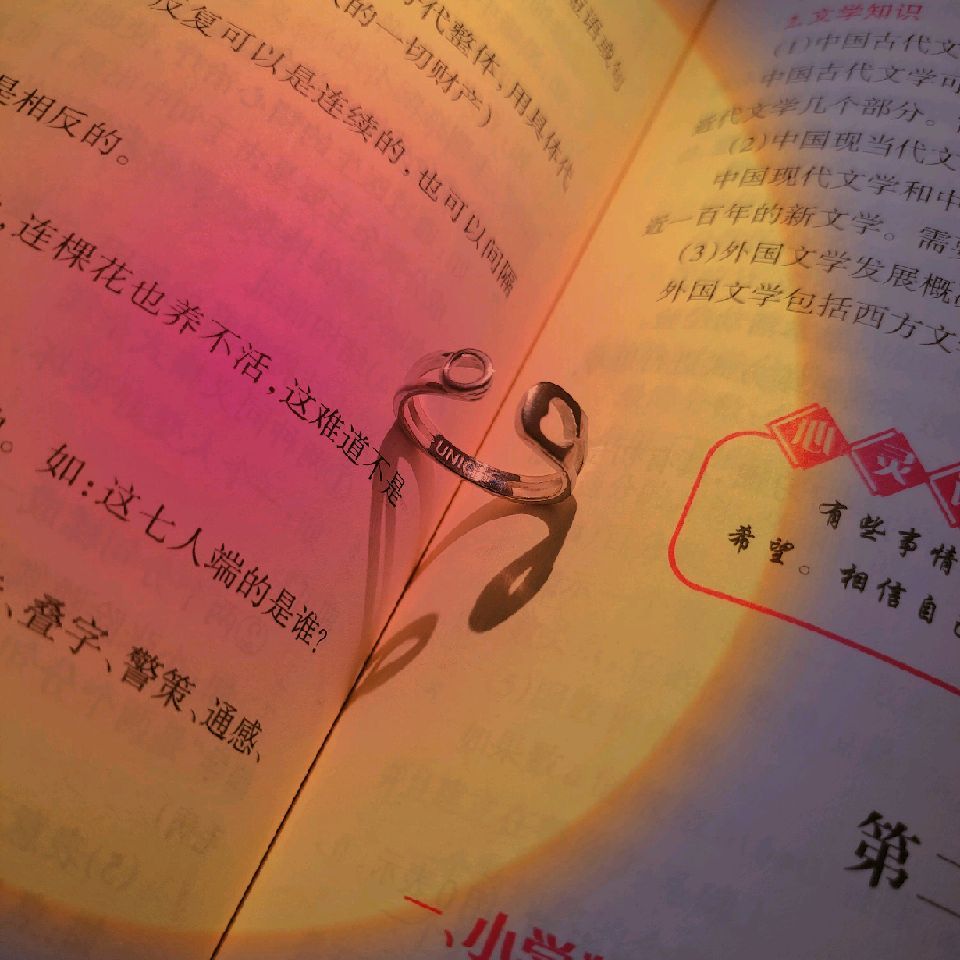 代整体,用具体代
的一切财产)
反复可以是连续的,也可以间隔
是相反的。
,连棵花也养不活,这难道不是
。如:这七人端的是谁?
、叠字、警策、通感、
UNIC
2.文学知识
(1)中国古代文
中国古代文学可
近代文学几个部分。
(2)中国现当代文
中国现代文学和中
近一百年的新文学。需要
(3)外国文学发展概
外国文学包括西方文学
心灵
有些事情
希望。相信自己
第二
一、小学